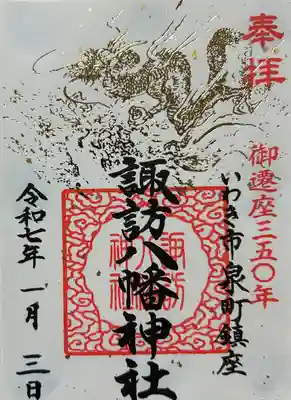 奉拝
御遷座三五〇年
いわき市泉町鎮座
諏訪八幡神社
令和七年一月三日